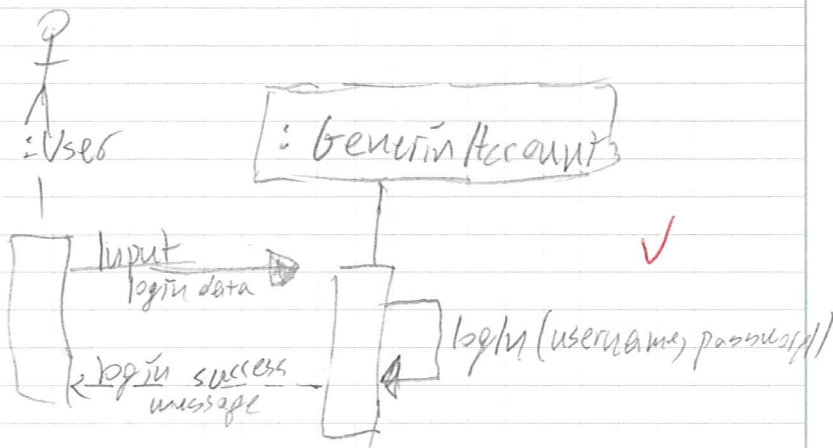 :User
: Generin Account
Input
login data
login (username, password)
login success
message